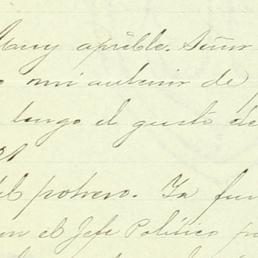 Muy aprible Señor
mi autenir de
tengo el gusto de
el potrero. Ya fu
en el Jefe Político